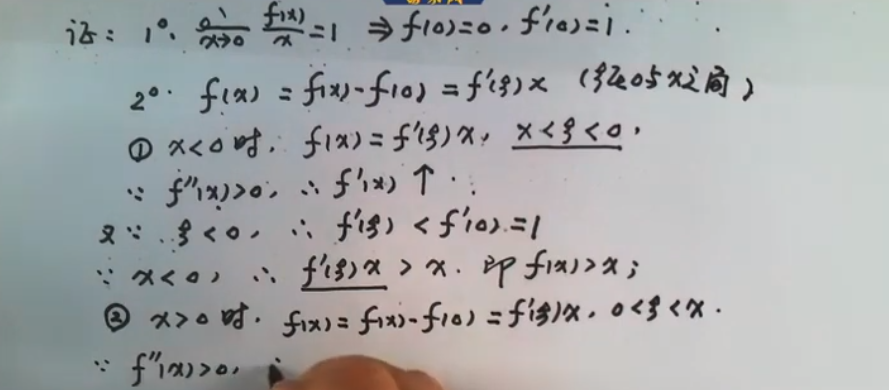 证: 1°. lim x→0 f(x)/x = 1 ⇒ f(0)=0, f'(0)=1.
2°. f(x) = f(x)-f(0) = f'(ξ)x (ξ在0与x之间)
① x<0时, f(x)=f'(ξ)x, x<ξ<0.
∵ f''(x)>0, ∴ f'(x)↑.
又∵ ξ<0, ∴ f'(ξ) < f'(0)=1
∵ x<0, ∴ f'(ξ)x > x. 即 f(x)>x;
② x>0时. f(x)=f(x)-f(0)=f'(ξ)x, 0<ξ<x.
∵ f''(x)>0,